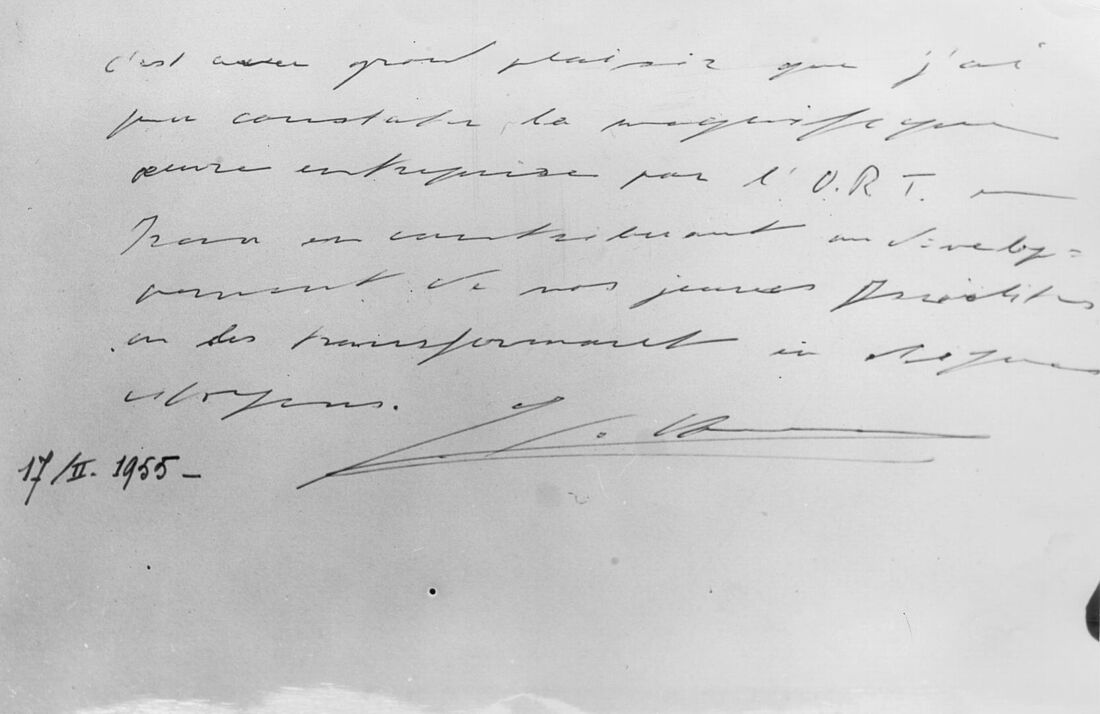 c'est avec grand plaisir que j'ai
pu constater la magnifique
oeuvre entreprise par l'O.R.T. en
Iran en contribuant au develop=
pement de nos jeunes Israélites
en les transformant en dignes
citoyens.
17/II. 1955 -